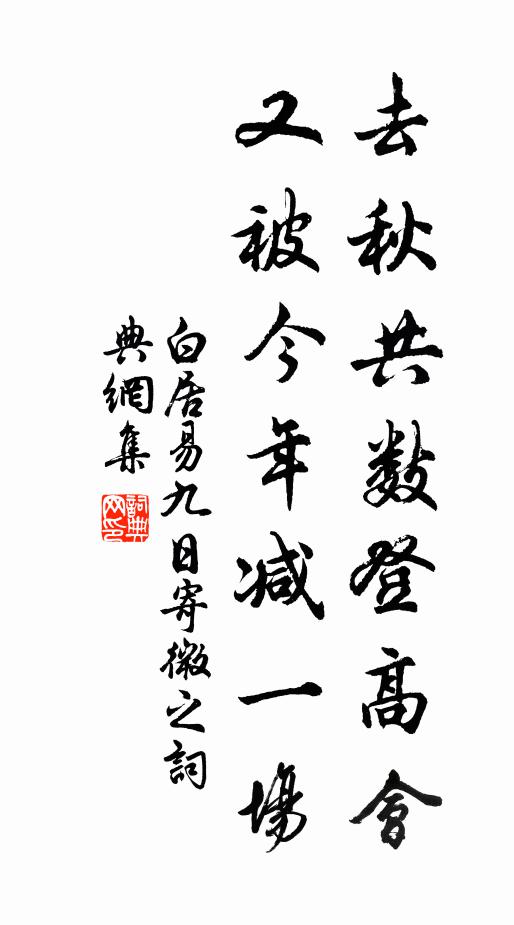 去秋共数登高會
又被今年減一場
白居易九日寄微之詞
典網集
詞典网印